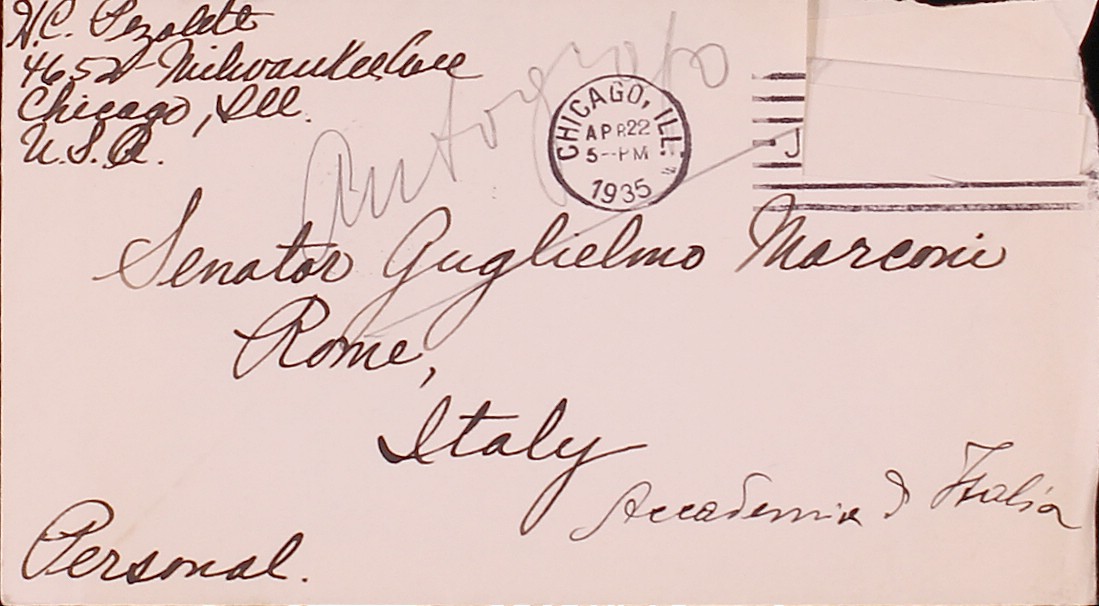 H.C. Pezoldt
4652 Milwaukee Ave
Chicago, Ill.
U.S.A.
Autografo
CHICAGO, ILL.
APR 22
5--PM
1935
Senator Guglielmo Marconi
Rome,
Italy
Accademia d Italia
Personal.